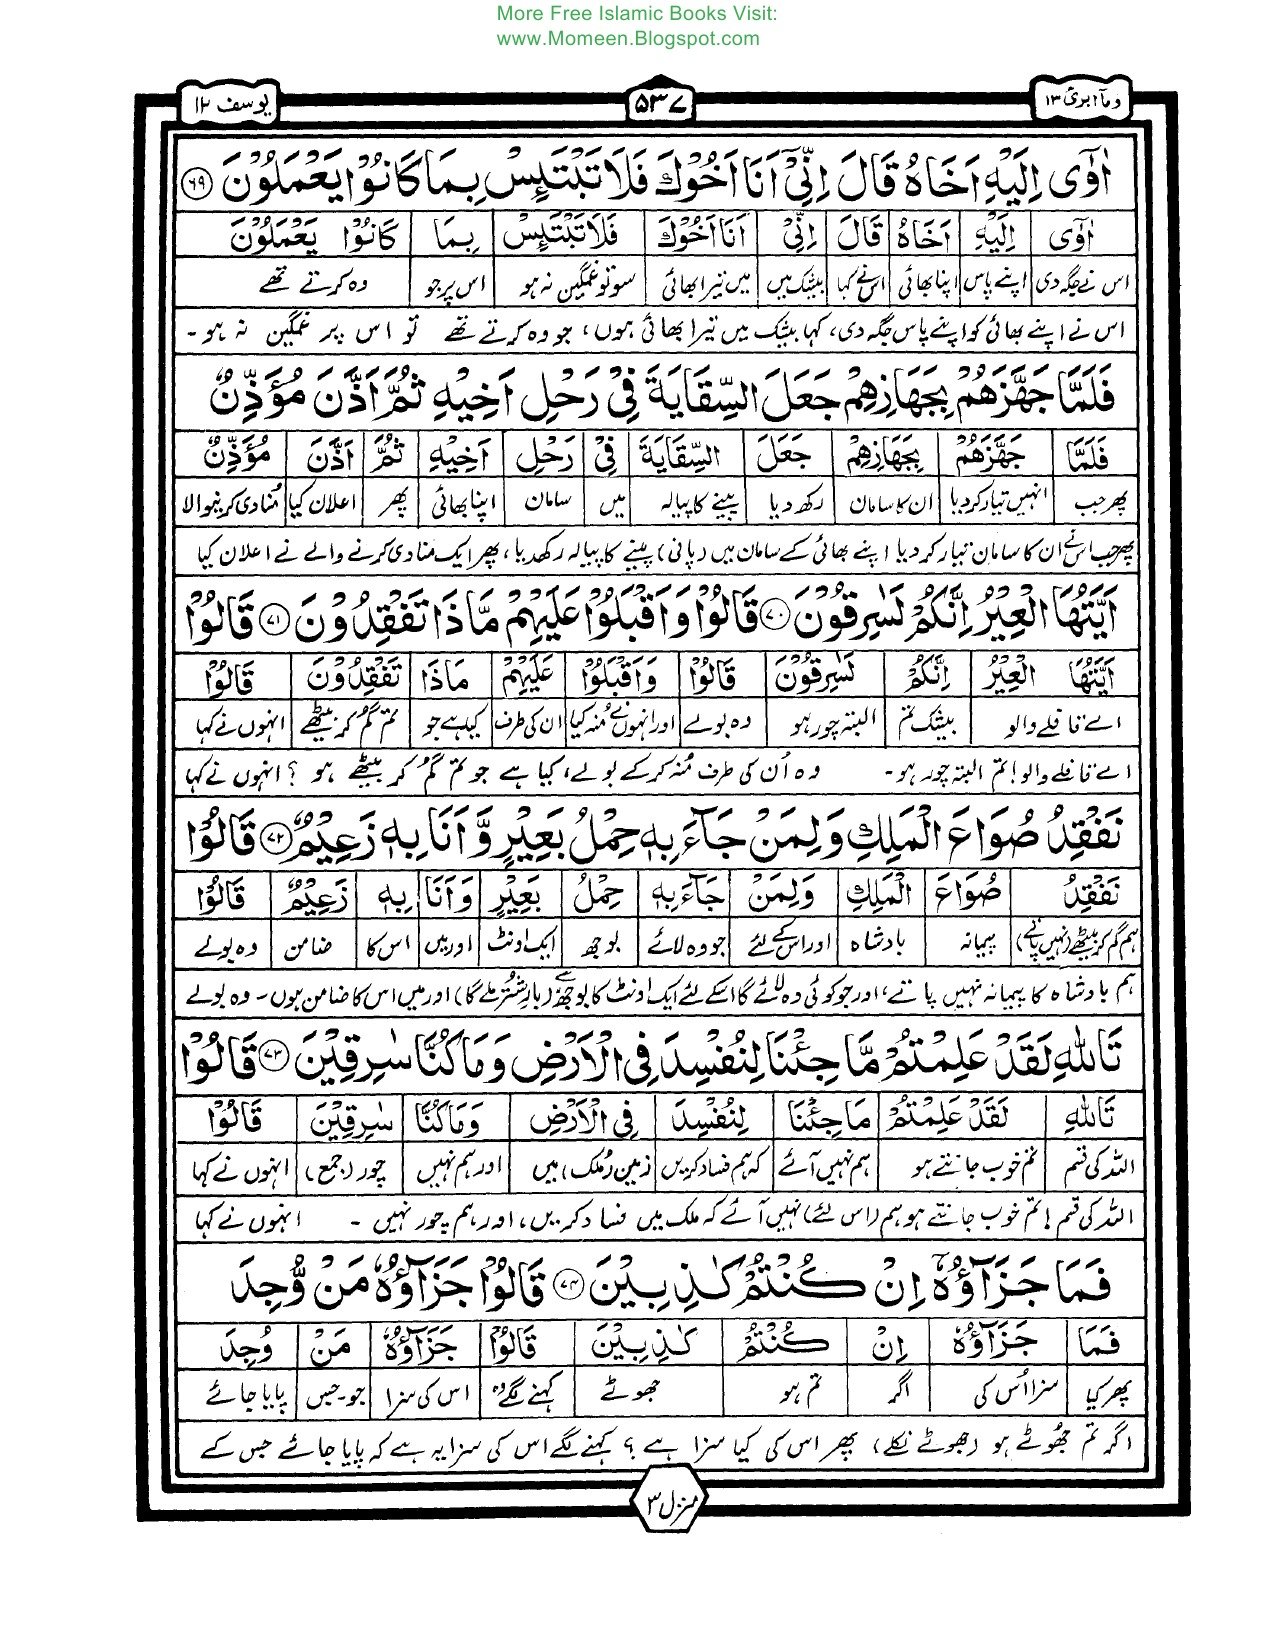 More Free Islamic Books Visit:
www.Momeen.Blogspot.com
ومآ ابرئ ١٣
٥٣٧
یوسف ١٢
اٰوٰٓى اِلَيْهِ اَخَاهُ قَالَ اِنِّىْٓ اَنَا اَخُوْكَ فَلَا تَبْتَئِسْ بِمَا كَانُوْا يَعْمَلُوْنَ ٦٩
اٰوٰٓى اِلَيْهِ اَخَاهُ قَالَ اِنِّىْ اَنَا اَخُوْكَ فَلَا تَبْتَئِسْ بِمَا كَانُوْا يَعْمَلُوْنَ
اس نے جگہ دی اپنے پاس اپنا بھائی اس نے کہا بیشک میں میں تیرا بھائی سو تو غمگین نہ ہو اس پر جو وہ کرتے تھے
اس نے اپنے بھائی کو اپنے پاس جگہ دی، کہا بیشک میں تیرا بھائی ہوں، جو وہ کرتے تھے تو اس پر غمگین نہ ہو۔
فَلَمَّا جَهَّزَهُمْ بِجَهَازِهِمْ جَعَلَ السِّقَايَةَ فِىْ رَحْلِ اَخِيْهِ ثُمَّ اَذَّنَ مُؤَذِّنٌ
فَلَمَّا جَهَّزَهُمْ بِجَهَازِهِمْ جَعَلَ السِّقَايَةَ فِىْ رَحْلِ اَخِيْهِ ثُمَّ اَذَّنَ مُؤَذِّنٌ
پھر جب انہیں تیار کر دیا ان کا سامان رکھ دیا پینے کا پیالہ میں سامان اپنا بھائی پھر اعلان کیا منادی کرنیوالا
پھر جب اس نے ان کا سامان تیار کر دیا اپنے بھائی کے سامان میں (پانی) پینے کا پیالہ رکھدیا، پھر ایک منادی کرنے والے نے اعلان کیا
اَيَّتُهَا الْعِيْرُ اِنَّكُمْ لَسٰرِقُوْنَ ٧٠ قَالُوْا وَاَقْبَلُوْا عَلَيْهِمْ مَّاذَا تَفْقِدُوْنَ ٧١ قَالُوْا
اَيَّتُهَا الْعِيْرُ اِنَّكُمْ لَسٰرِقُوْنَ قَالُوْا وَاَقْبَلُوْا عَلَيْهِمْ مَاذَا تَفْقِدُوْنَ قَالُوْا
اے قافلے والو بیشک تم البتہ چور ہو وہ بولے اور انہوں نے منہ کیا ان کی طرف کیا ہے جو تم گم کر بیٹھے انہوں نے کہا
اے قافلے والو! تم البتہ چور ہو۔ وہ اُن کی طرف منہ کر کے بولے، کیا ہے جو تم گم کر بیٹھے ہو؟ انہوں نے کہا
نَفْقِدُ صُوَاعَ الْمَلِكِ وَلِمَنْ جَآءَ بِهٖ حِمْلُ بَعِيْرٍ وَّاَنَا بِهٖ زَعِيْمٌ ٧٢ قَالُوْا
نَفْقِدُ صُوَاعَ الْمَلِكِ وَلِمَنْ جَآءَ بِهٖ حِمْلُ بَعِيْرٍ وَاَنَا بِهٖ زَعِيْمٌ قَالُوْا
ہم گم کر بیٹھے (نہیں پاتے) پیمانہ بادشاہ اور اس کے لئے جو وہ لائے بوجھ ایک اونٹ اور میں اس کا ضامن وہ بولے
ہم بادشاہ کا پیمانہ نہیں پاتے، اور جو کوئی وہ لائے گا اسکے لئے ایک اونٹ کا بوجھ ہے (بارِ شتر ملے گا) اور میں اس کا ضامن ہوں۔ وہ بولے
تَاللّٰهِ لَقَدْ عَلِمْتُمْ مَّا جِئْنَا لِنُفْسِدَ فِى الْاَرْضِ وَمَا كُنَّا سٰرِقِيْنَ ٧٣ قَالُوْا
تَاللّٰهِ لَقَدْ عَلِمْتُمْ مَا جِئْنَا لِنُفْسِدَ فِى الْاَرْضِ وَمَا كُنَّا سٰرِقِيْنَ قَالُوْا
اللہ کی قسم تم خوب جانتے ہو ہم نہیں آئے کہ ہم فساد کریں زمین (ملک) میں اور ہم نہیں چور (جمع) انہوں نے کہا
اللہ کی قسم! تم خوب جانتے ہو ہم (اس لئے) نہیں آئے کہ ملک میں فساد کریں، اور ہم چور نہیں۔ انہوں نے کہا
فَمَا جَزَآؤُهٗٓ اِنْ كُنْتُمْ كٰذِبِيْنَ ٧٤ قَالُوْا جَزَآؤُهٗ مَنْ وُّجِدَ
فَمَا جَزَآؤُهٗ اِنْ كُنْتُمْ كٰذِبِيْنَ قَالُوْا جَزَآؤُهٗ مَنْ وُجِدَ
پھر کیا سزا اُس کی اگر تم ہو جھوٹے کہنے لگے وہ اس کی سزا جو۔جس پایا جائے
اگر تم جھوٹے ہو (جھوٹے نکلے) پھر اس کی کیا سزا ہے؟ کہنے لگے اس کی سزا یہ ہے کہ پایا جائے جس کے
منزل ٣